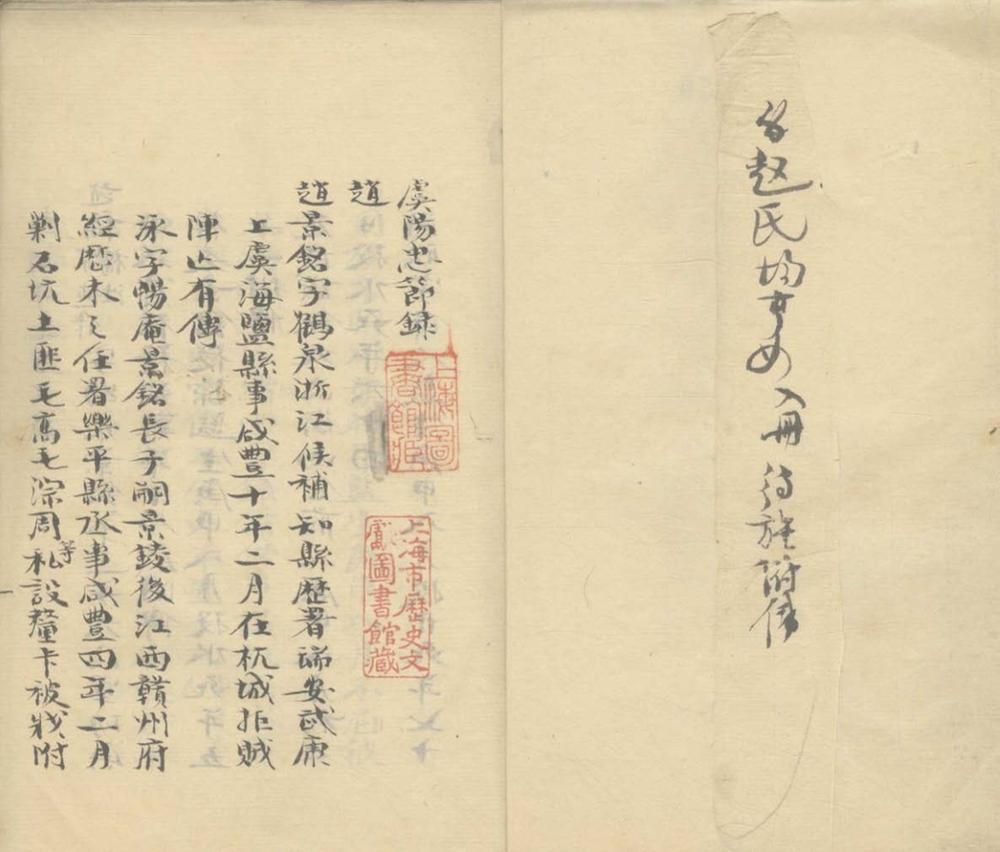 趙氏均 入冊 待旌附傳
虞陽忠節録
趙
趙景銘字鶴泉浙江候補知縣歷署瑞安武康
上虞海鹽縣事咸豐十年二月在杭城拒賊
陣亡有傳
泳字暢庵景銘長子嗣景錂後江西贛州府
經歷未之任署樂平縣丞事咸豐四年二月
剿石坑土匪毛高毛淙周等私設釐卡被戕附
上海圖書館藏
上海市歷史文獻圖書館藏